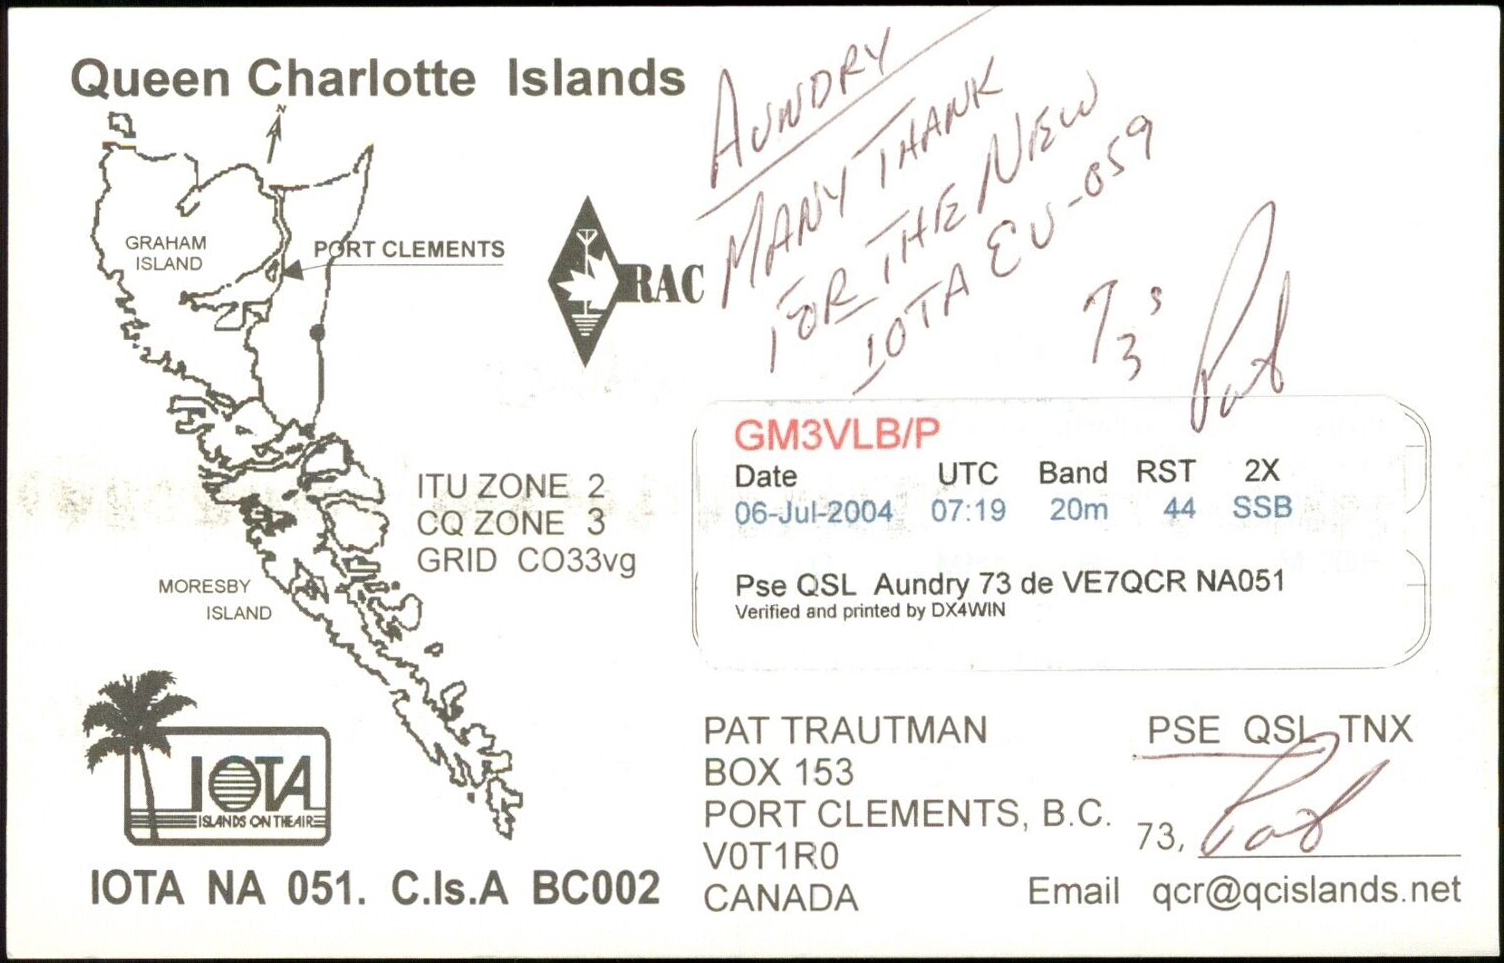 Queen Charlotte Islands
N
GRAHAM
ISLAND
PORT CLEMENTS
RAC
AUNDRY
MANY THANK
FOR THE NEW
IOTA EU-059
73's Pat
GM3VLB/P
Date UTC Band RST 2X
06-Jul-2004 07:19 20m 44 SSB
Pse QSL Aundry 73 de VE7QCR NA051
Verified and printed by DX4WIN
ITU ZONE 2
CQ ZONE 3
GRID CO33vg
MORESBY
ISLAND
IOTA
ISLANDS ON THE AIR
IOTA NA 051. C.Is.A BC002
PAT TRAUTMAN
BOX 153
PORT CLEMENTS, B.C.
V0T1R0
CANADA
PSE QSL TNX
73, Pat
Email qcr@qcislands.net